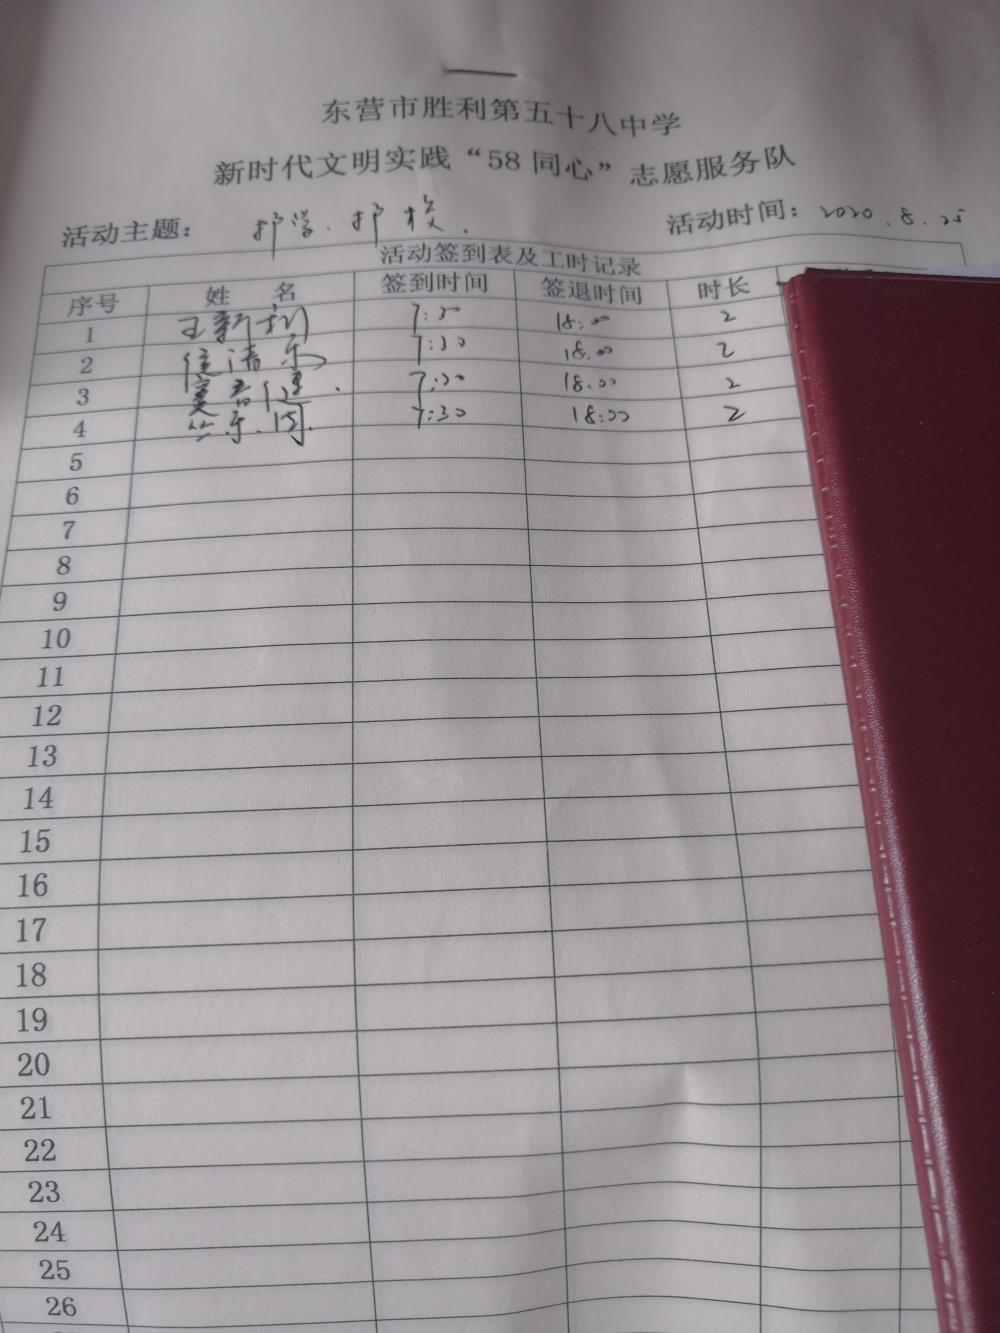 东营市胜利第五十八中学
新时代文明实践“58 同心”志愿服务队
活动主题： 护学.护校. 活动时间：2020.8.25
活动签到表及工时记录
序号 姓 名 签到时间 签退时间 时长
1 王新 7:30 18:00 2
2 7:30 18:00 2
3 7:30 18:00 2
4 竺乐 7:30 18:00 2
5
6
7
8
9
10
11
12
13
14
15
16
17
18
19
20
21
22
23
24
25
26